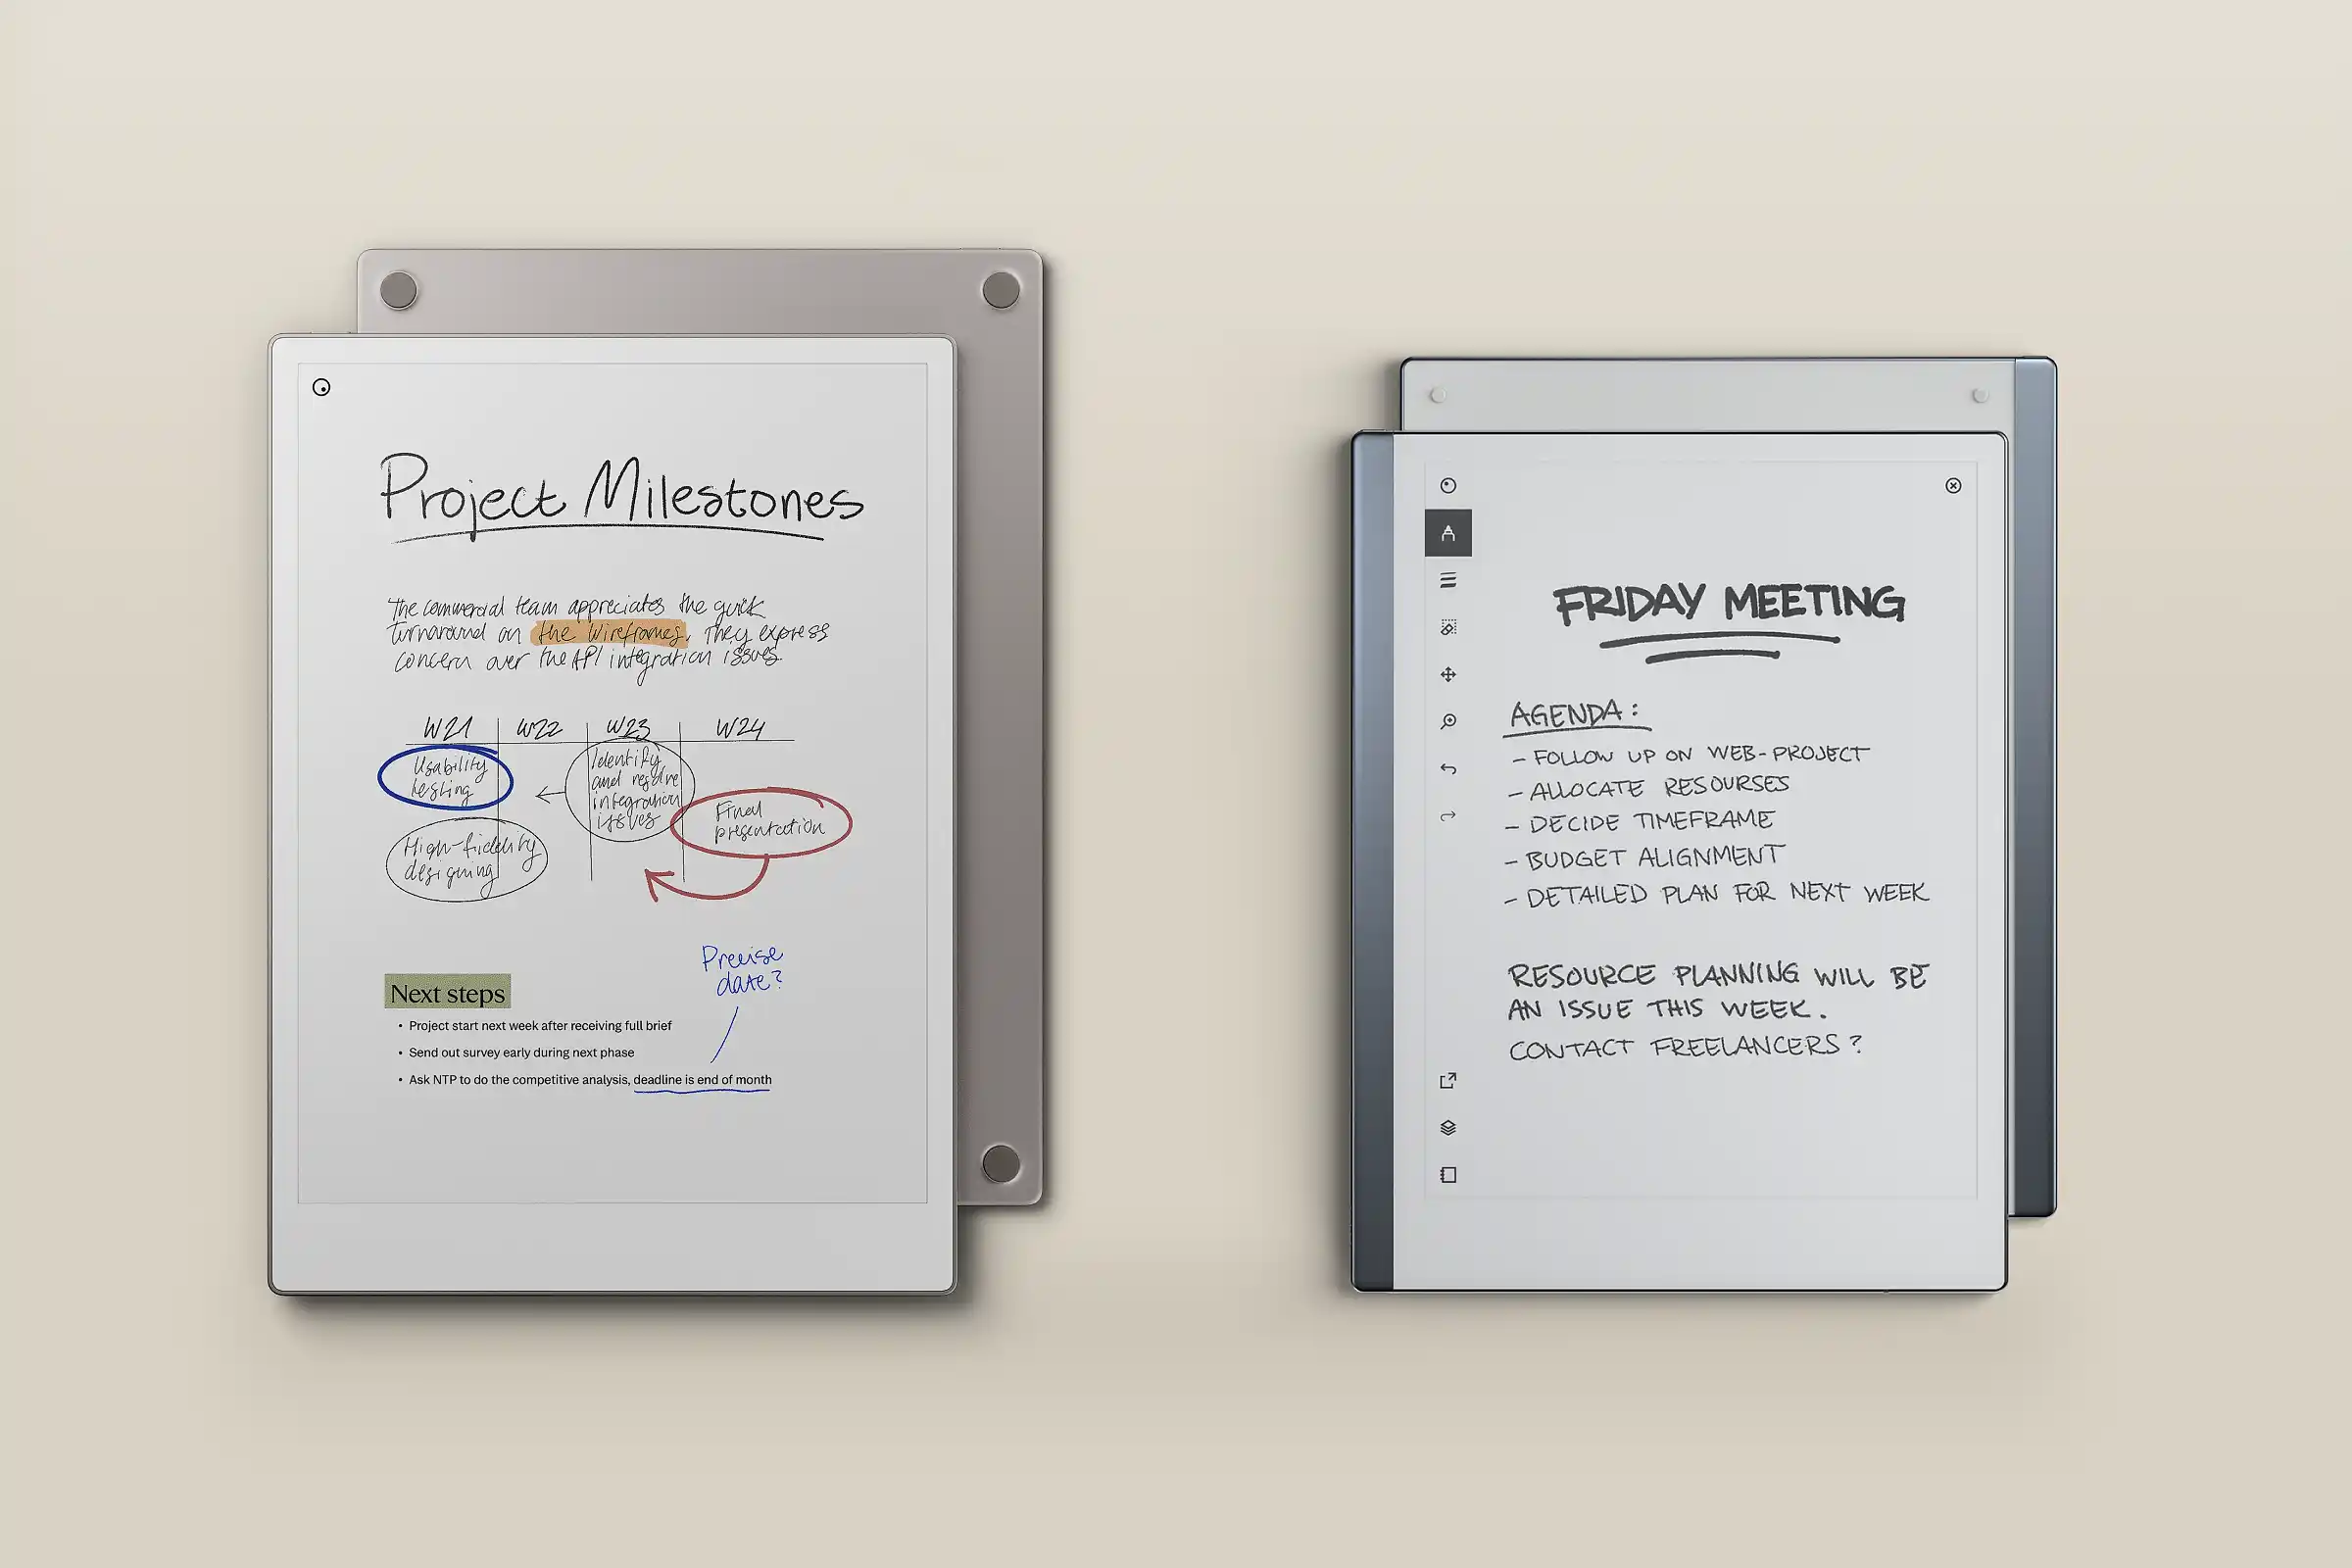 Project Milestones
The commercial team appreciates the quick
turnaround on the wireframes. They express
concern over the API integration issues.
W21 W22 W23 W24
Usability
testing
High-fidelity
designing
Identify
and resolve
integration
issues
Final
presentation
Precise
date?
Next steps
• Project start next week after receiving full brief
• Send out survey early during next phase
• Ask NTP to do the competitive analysis, deadline is end of month
FRIDAY MEETING
AGENDA:
- FOLLOW UP ON WEB-PROJECT
- ALLOCATE RESOURSES
- DECIDE TIMEFRAME
- BUDGET ALIGNMENT
- DETAILED PLAN FOR NEXT WEEK
RESOURCE PLANNING WILL BE
AN ISSUE THIS WEEK.
CONTACT FREELANCERS?